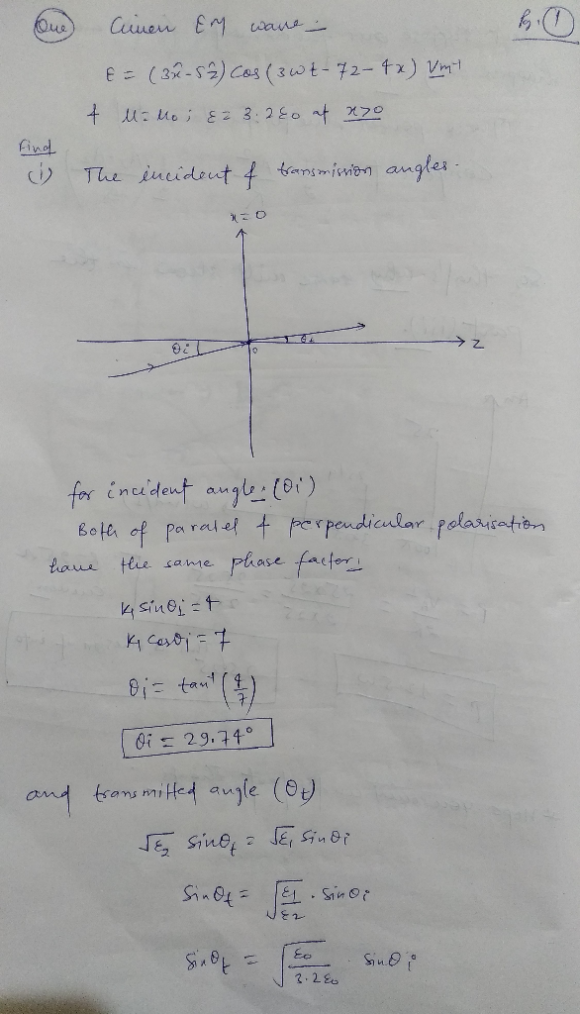 Que Given EM wave:- P.1
E = (3x̂-5ẑ) Cos(3wt-7z-4x) Vm⁻¹
& μ=μ₀; ε=3.2ε₀ at x>0
Find
(i) The incident & transmission angles.
x=0
θi
0
z
for incident angle:(θi)
Both of paralel & perpendicular polarisation
have the same phase factor:
K₁ sinθi = 4
K₁ cosθi = 7
θi = tan⁻¹(4/7)
θi = 29.74°
and transmitted angle (θt)
√ε₂ sinθt = √ε₁ sinθi
sinθt = √(ε₁/ε₂) . sinθi
sinθt = √(ε₀/3.2ε₀) sinθi